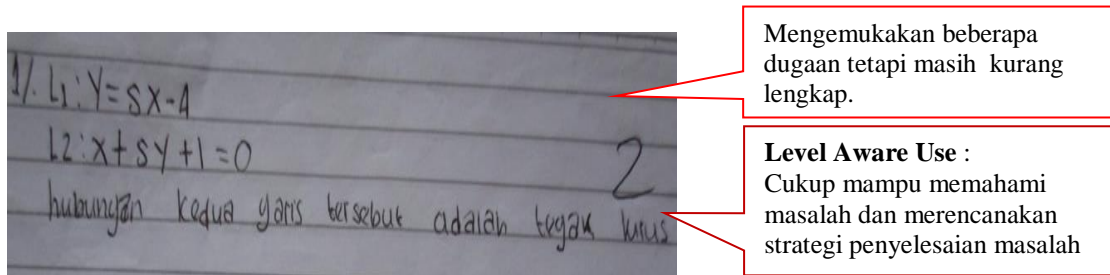 1/. L1: Y=5X-4
L2: X+5Y+1=0
hubungan kedua garis tersebut adalah tegak lurus
2
Mengemukakan beberapa
dugaan tetapi masih kurang
lengkap.
Level Aware Use :
Cukup mampu memahami
masalah dan merencanakan
strategi penyelesaian masalah